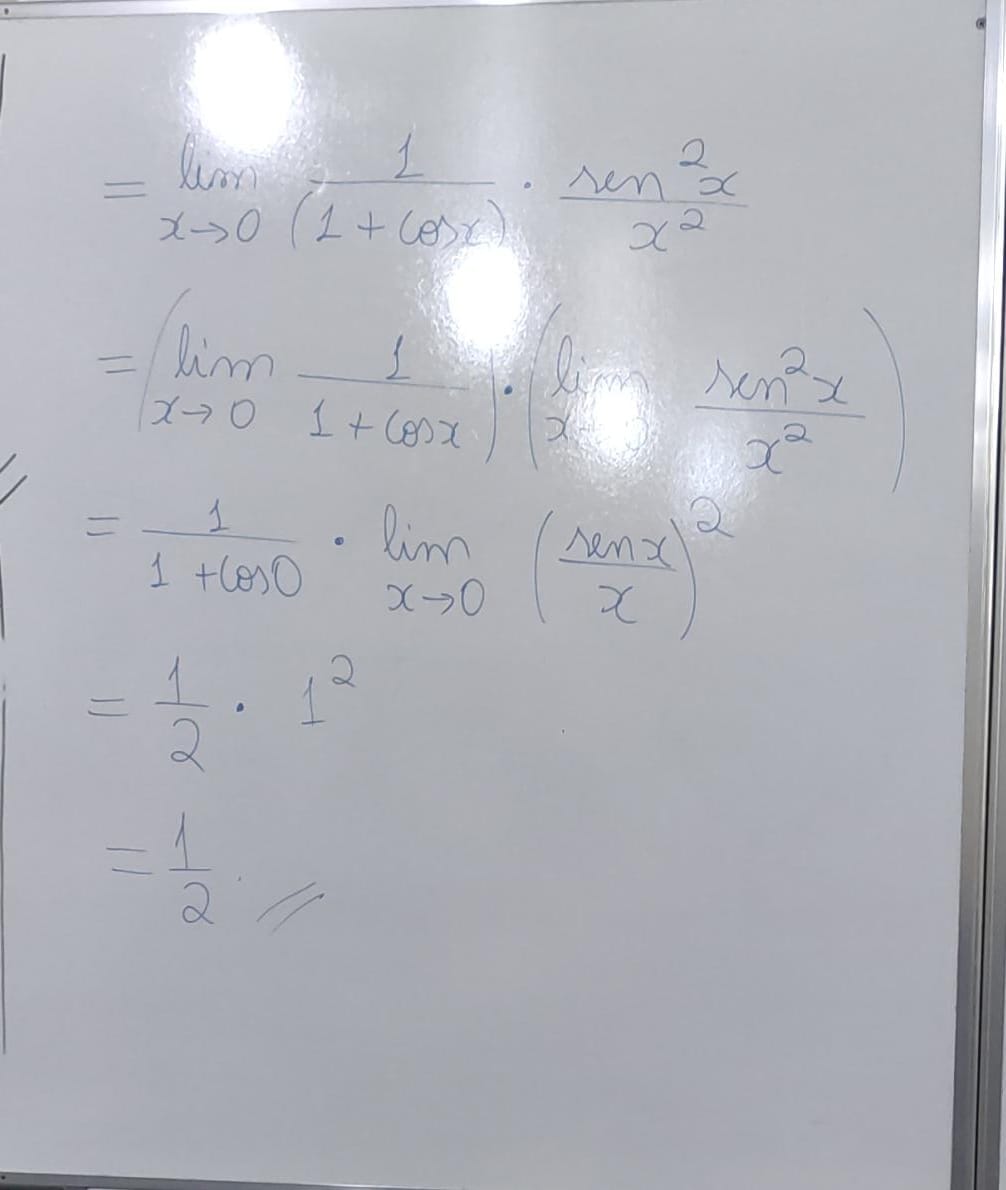 = lim x→0 1/(1+cosx) · sen²x/x²
= (lim x→0 1/(1+cosx)) · (lim x→0 sen²x/x²)
= 1/(1+cos0) · lim x→0 (senx/x)²
= 1/2 · 1²
= 1/2 . //